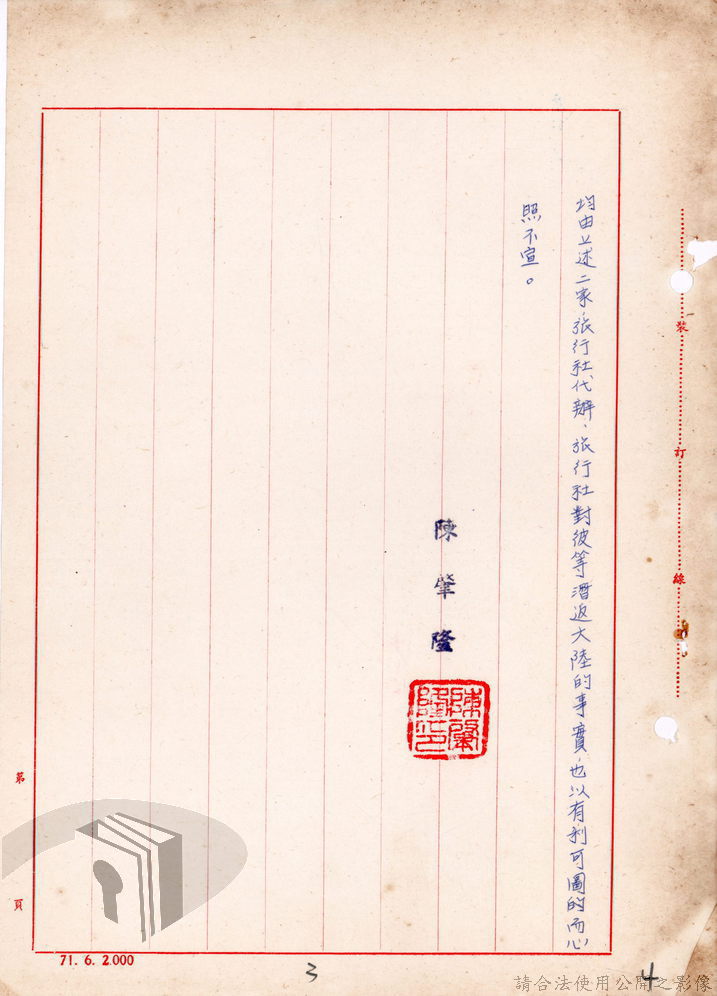 均由上述二家旅行社代辦、旅行社對彼等潛返大陸的事實也以有利可圖的而心
照不宣。
陳肇隆
陳肇隆印
裝訂線
第頁
71. 6. 2.000
3
4
請合法使用公開之影像